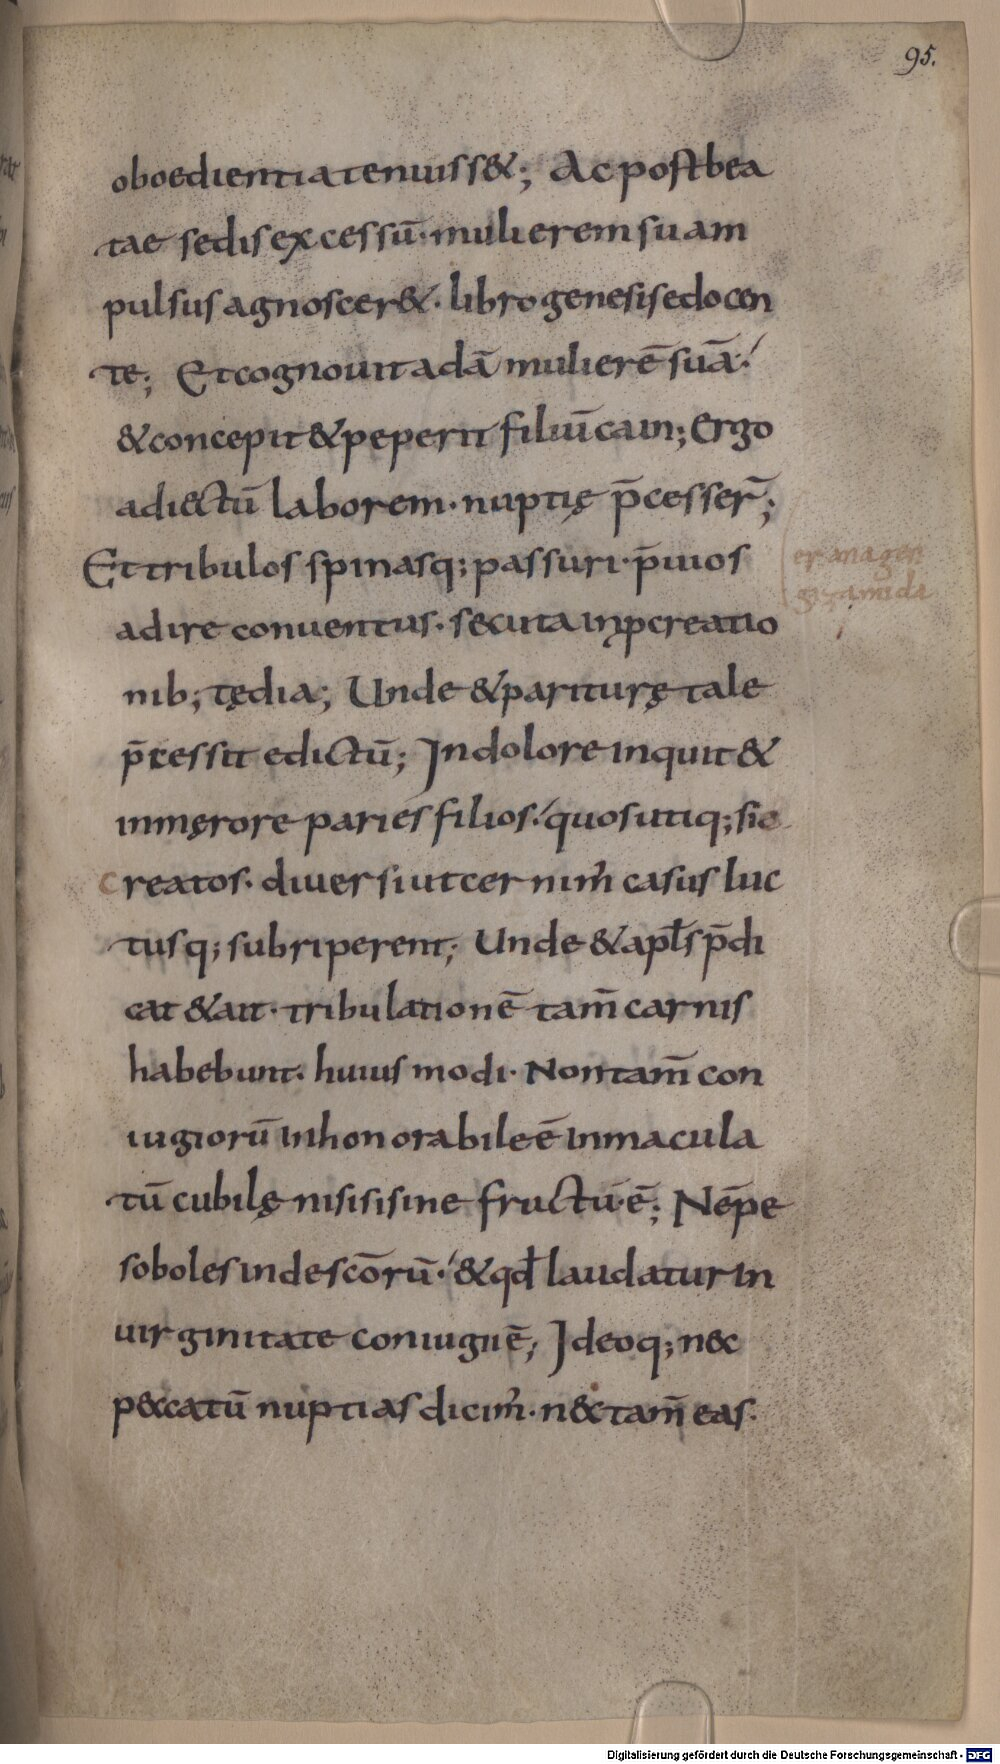 95.
oboedientia tenuiss&; Ac post bea
tae sedis excessū· mulierem suam
pulsus agnoscer&· libro genesis edocen
te; Et cognouit adā mulierē suā·
& concepit & peperit filiū cain; Ergo
adiectū laborem· nuptię p̄cesser̄;
Et tribulos spinasq; passuri· p̄iuos
adire conuentus· secuta in ꝓcreatio
nib; tędia; Unde & pariturę tale
p̄cessit edictū; In dolore inquit &
in męrore paries filios· quos utiq; sic
creatos· diuersi ut cernim̄ casus luc
tusq; subriperent; Unde & apłs p̄di
cat & ait· tribulationē tam̄ carnis
habebunt· huius modi· Non tam̄ con
iugiorū inhonorabile ē inmacula
tū cubilę nisi si sine fructu ē; Nēpe
soboles inde sc̄orū· & qđ laudatur in
uirginitate coniugii ē; Ideoq; nec
peccatū nuptias dicim̄· nec tam̄ eas·
Digitalisierung gefördert durch die Deutsche Forschungsgemeinschaft - DFG